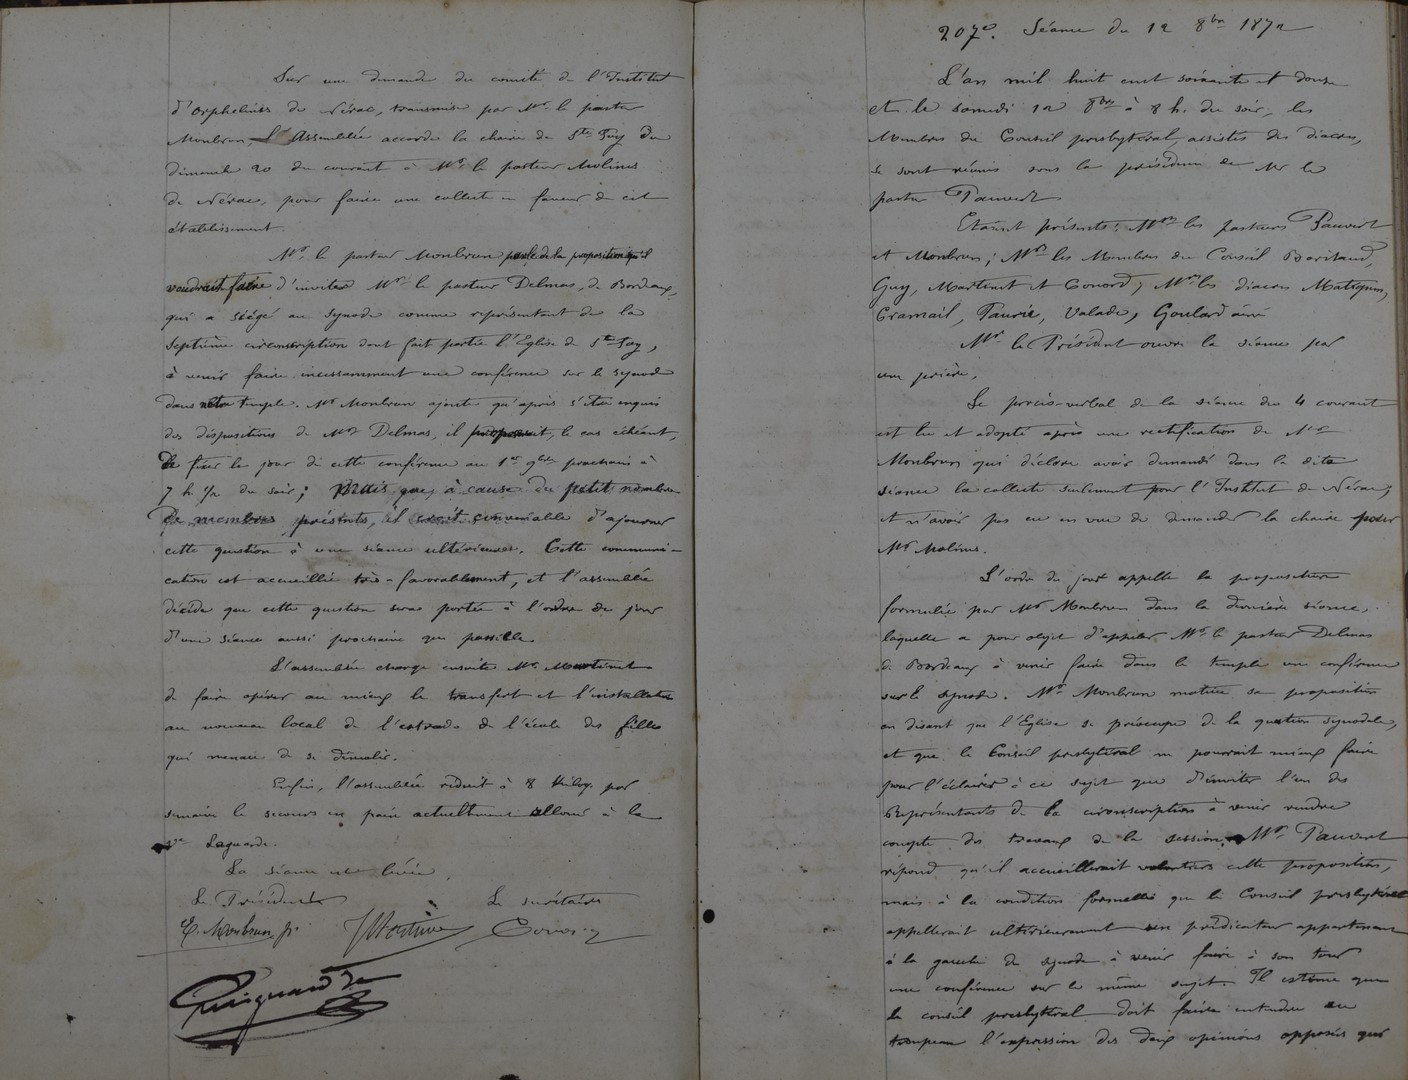 Sur une demande du comité de l'Institut
d'Orphelines de Nérac, transmise par Mr. le pasteur
Monbrun, l'Assemblée accorde la chaire de Ste Foy du
dimanche 20 du courant à Mr. le pasteur Molines
de Nérac, pour faire une collecte en faveur de cet
établissement.
Mr. le pasteur Monbrun parle de la proposition qu'il
voudrait faire d'inviter Mr. le pasteur Delmas, de Bordeaux,
qui a siégé au synode comme représentant de la
septième circonscription dont fait partie l'Eglise de Ste Foy,
à venir faire incessamment une conférence sur le synode
dans notre temple. Mr Monbrun ajoute qu'après s'être enquis
des dispositions de Mr Delmas, il proposait, le cas échéant,
de fixer le jour de cette conférence au 1er 9bre prochain à
7 h 1/2 du soir; mais que, à cause du petit nombre
de membres présents, il croit convenable d'ajourner
cette question à une séance ultérieure. Cette communi-
cation est accueillie très-favorablement, et l'assemblée
décide que cette question sera portée à l'ordre du jour
d'une séance aussi prochaine que possible.
L'assemblée charge ensuite Mr. Martinet
de faire opérer au mieux le transfert et l'installation
au nouveau local de l'estrade de l'école des filles
qui menace de se démolir.
Enfin, l'assemblée réduit à 8 kilog. par
semaine le secours en pain actuellement alloué à la
Ve Lagarde.
La séance est levée.
Le Président Le secrétaire
E. Monbrun, pr.
207e. Séance du 12 8bre 1872
L'an mil huit cent soixante et douze
et le samedi 12 8bre à 8 h. du soir, les
Membres du Conseil presbytéral, assistés des diacres,
se sont réunis sous la présidence de Mr le
pasteur Pauvert.
Etaient présents: Mrs les pasteurs Pauvert
et Monbrun; Mrs les Membres du Conseil Baritaud,
Guy, Martinet et Conord; Mrs les diacres
Cramail, Valade, Goulard aîné
Mr le Président ouvre la séance par
une prière.
Le procès-verbal de la séance du 4 courant
est lu et adopté après une rectification de Mr
Monbrun qui déclare avoir demandé dans la dite
séance la collecte seulement pour l'Institut de Nérac,
et n'avoir pas eu en vue de demander la chaire pour
Mr Molines.
L'ordre du jour appelle la proposition
formulée par Mr Monbrun dans la dernière séance,
laquelle a pour objet d'appeler Mr. le pasteur Delmas
de Bordeaux à venir faire dans le temple une conférence
sur le synode. Mr Monbrun motive sa proposition
en disant que l'Eglise se préoccupe de la question synodale,
et que le Conseil presbytéral ne pourrait mieux faire
pour l'éclairer à ce sujet que d'inviter l'un des
Représentants de la circonscription à venir rendre
compte des travaux de la session. Mr. Pauvert
répond qu'il accueillerait volontiers cette proposition,
mais à la condition formelle que le Conseil presbytéral
appellerait ultérieurement un prédicateur appartenant
à la gauche du synode à venir faire à son tour
une conférence sur le même sujet. Il estime que
le conseil presbytéral doit faire entendre au
troupeau l'expression des deux opinions opposées qui